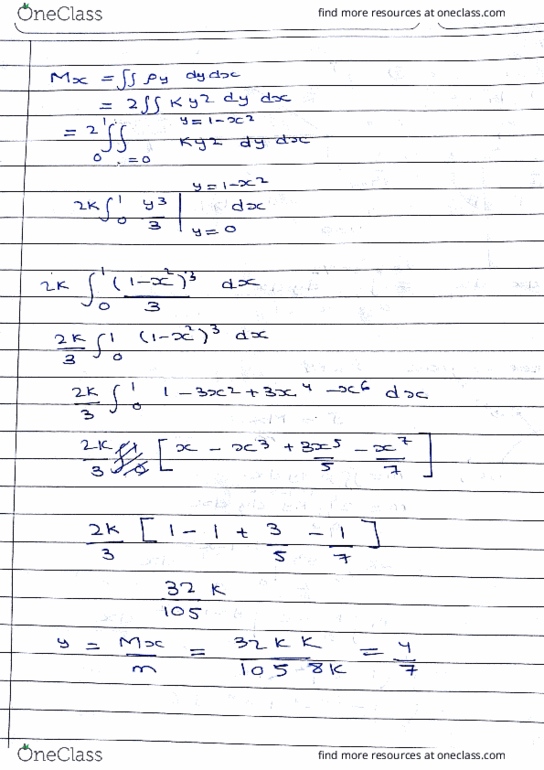 OneClass find more resources at oneclass.com
Mx = ∬ ρy dy dx
= 2∬ Ky2 dy dx
= 2 ∫₀¹ ∫ y=1-x2 =0 Ky2 dy dx
2K ∫₀¹ y3/3 | y=1-x2 y=0 dx
2K ∫₀¹ (1-x²)³/3 dx
2K/3 ∫₀¹ (1-x²)³ dx
2K/3 ∫₀¹ 1-3x2+3x⁴-x⁶ dx
2K/3 [x - x³ + 3x⁵/5 - x⁷/7]
2K/3 [1 - 1 + 3/5 - 1/7]
32 K/105
y = Mx/m = 32K K/105 8K = 4/7
OneClass find more resources at oneclass.com